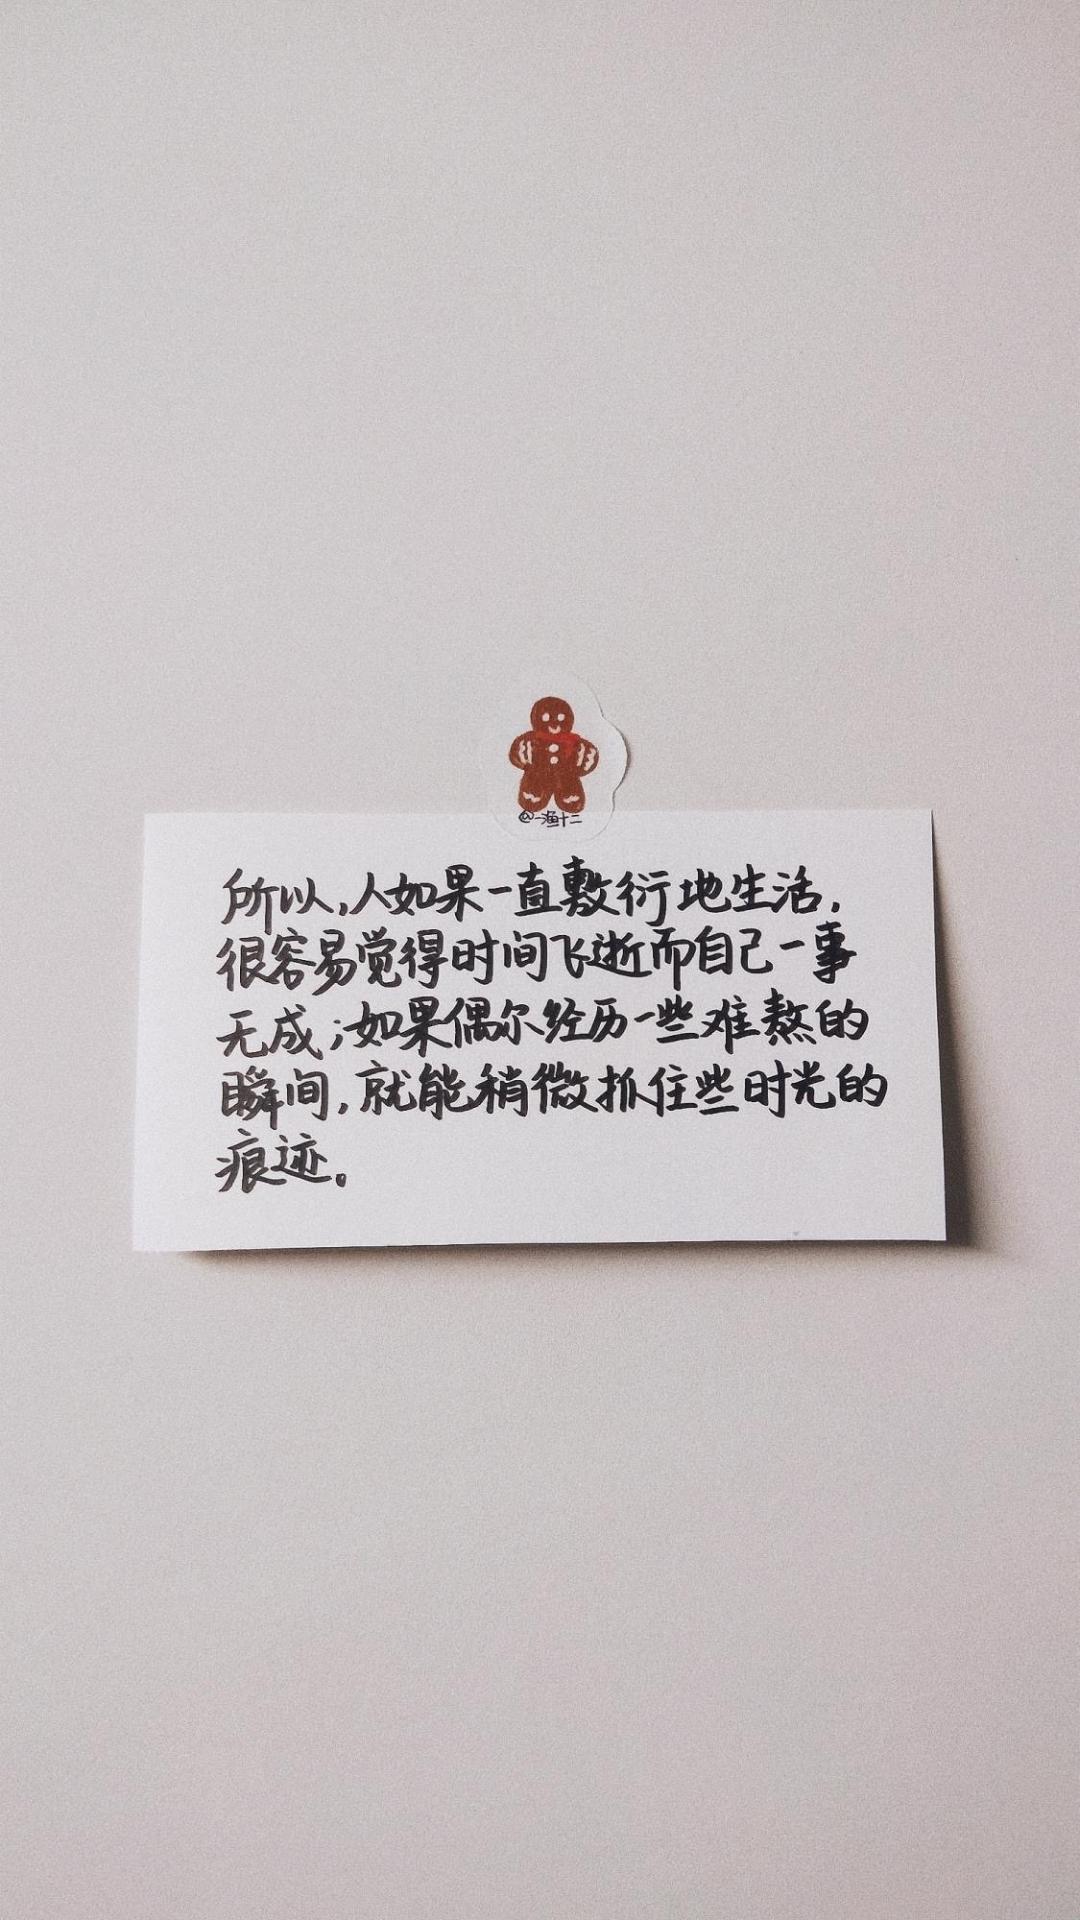 @一渔十二
所以,人如果一直敷衍地生活,
很容易觉得时间飞逝而自己一事
无成;如果偶尔经历一些难熬的
瞬间,就能稍微抓住些时光的
痕迹。